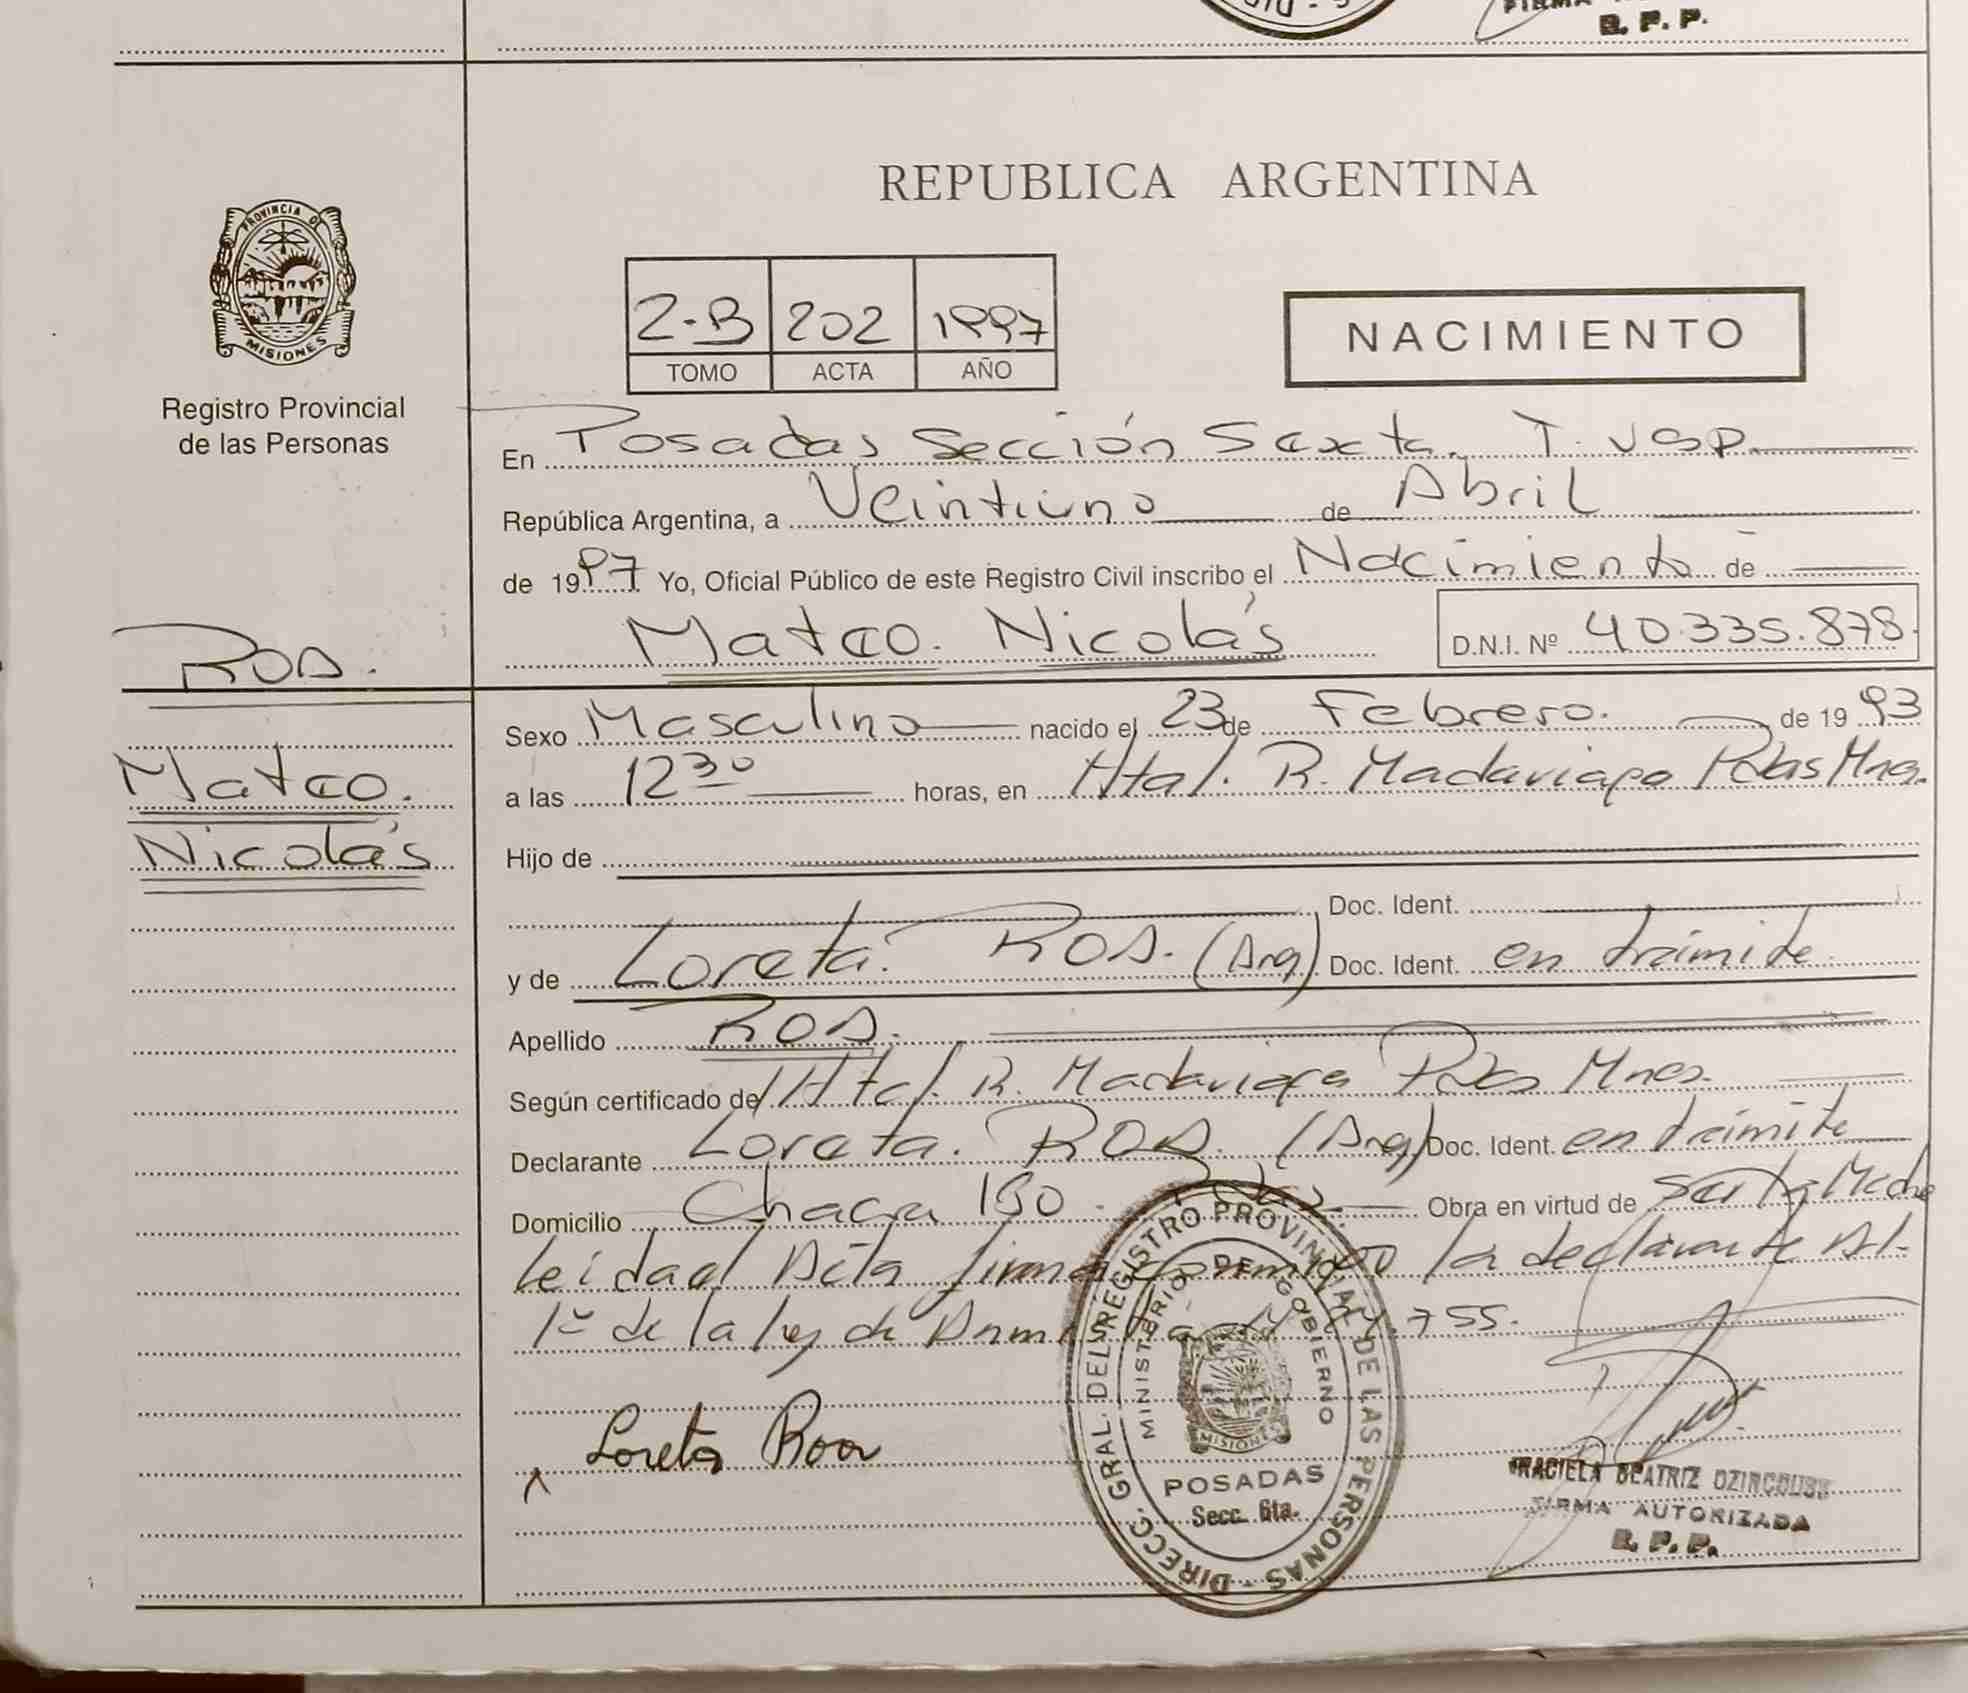 B. P. P.
PROVINCIA DE
MISIONES
Registro Provincial
de las Personas
REPUBLICA ARGENTINA
2-B 202 1997
TOMO ACTA AÑO
NACIMIENTO
En Posadas Sección Sexta.
República Argentina, a Veintiuno de Abril
de 1997 Yo, Oficial Público de este Registro Civil inscribo el Nacimiento de
Mateo. Nicolás D.N.I. Nº 40.335.878.
ROA.
Mateo.
Nicolás
Sexo Masculino nacido el 23 de Febrero. de 1993
a las 12 30 horas, en Htal. R. Madariaga Pdas Mnes.
Hijo de
Doc. Ident.
y de Loreta. ROA. (Arg) Doc. Ident. en trámite
Apellido ROA.
Según certificado de Htal. R. Madariaga Pdas Mnes.
Declarante Loreta. ROA. (Arg) Doc. Ident. en trámite
Domicilio Chacra 150. Pdas Obra en virtud de
Leida el Acta firma conmigo la declarante Art.
1º de la ley de 755.
Loreta Roa
DIRECC. GRAL. DEL REGISTRO PROVINCIAL DE LAS PERSONAS
MINISTERIO DE GOBIERNO
MISIONES
POSADAS
Secc. 6ta.
GRACIELA BEATRIZ
FIRMA AUTORIZADA
B. P. P.